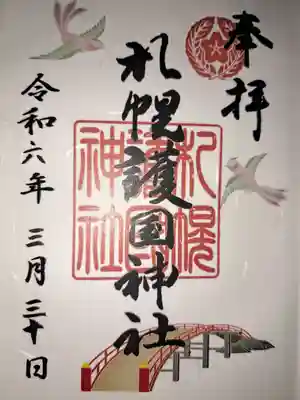 奉拝
札幌護国神社
札幌護国神社
令和六年 三月三十日